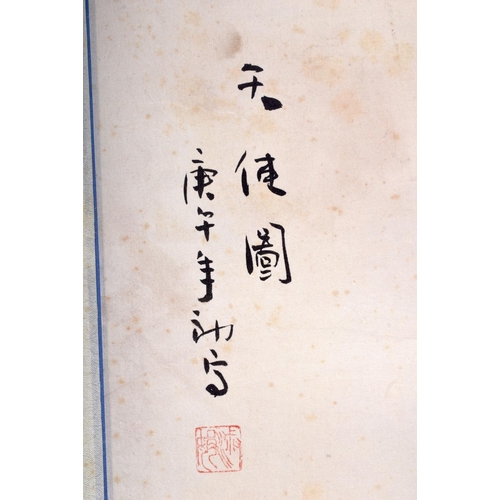 天使圖
庚午年初写